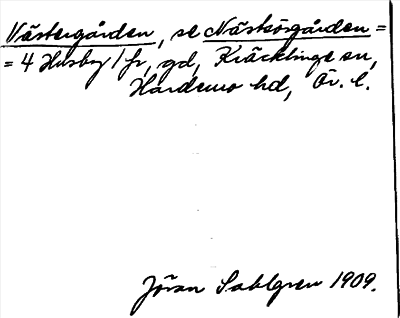 Västergården, se Nästsörgården =
= 4 Husby 1 fr, gd, Kräcklinge sn,
Hardemo hd, Ör. l.
Jöran Sahlgren 1909.